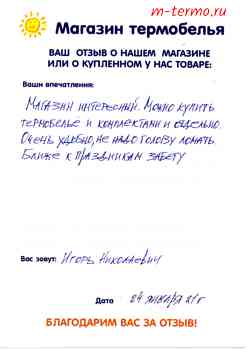 m-termo.ru
Магазин термобелья
ВАШ ОТЗЫВ О НАШЕМ МАГАЗИНЕ
ИЛИ О КУПЛЕННОМ У НАС ТОВАРЕ:
Ваши впечатления:
Магазин интересный. Можно купить
термобелье и комплектами и отдельно.
Очень удобно, не надо голову ломать.
Ближе к праздникам забегу
Вас зовут: Игорь Николаевич
Дата 24 января
БЛАГОДАРИМ ВАС ЗА ОТЗЫВ!